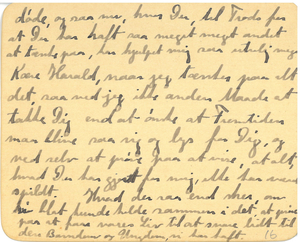 døde, og saa nu, hvor Du, til Trods for
at Du har haft saa meget meget andet
at tænke paa, har hjulpet mig saa utrolig meget
Kære Harald, naar jeg tænker paa alt
det, saa ved jeg ikke anden Maade at
takke Dig end at ønske at Fremtiden
maa blive saa rig og lys for Dig, og
ved selv at give paa at vise, at alt,
hvad Du har gjort for mig, ikke har været
spildt. Hvad der saa end sker, om
vi blot kunde holde sammen i det, at give
paa at faa vores Liv til at svare lidt til
den Barndom og Ungdom, vi har haft. 15